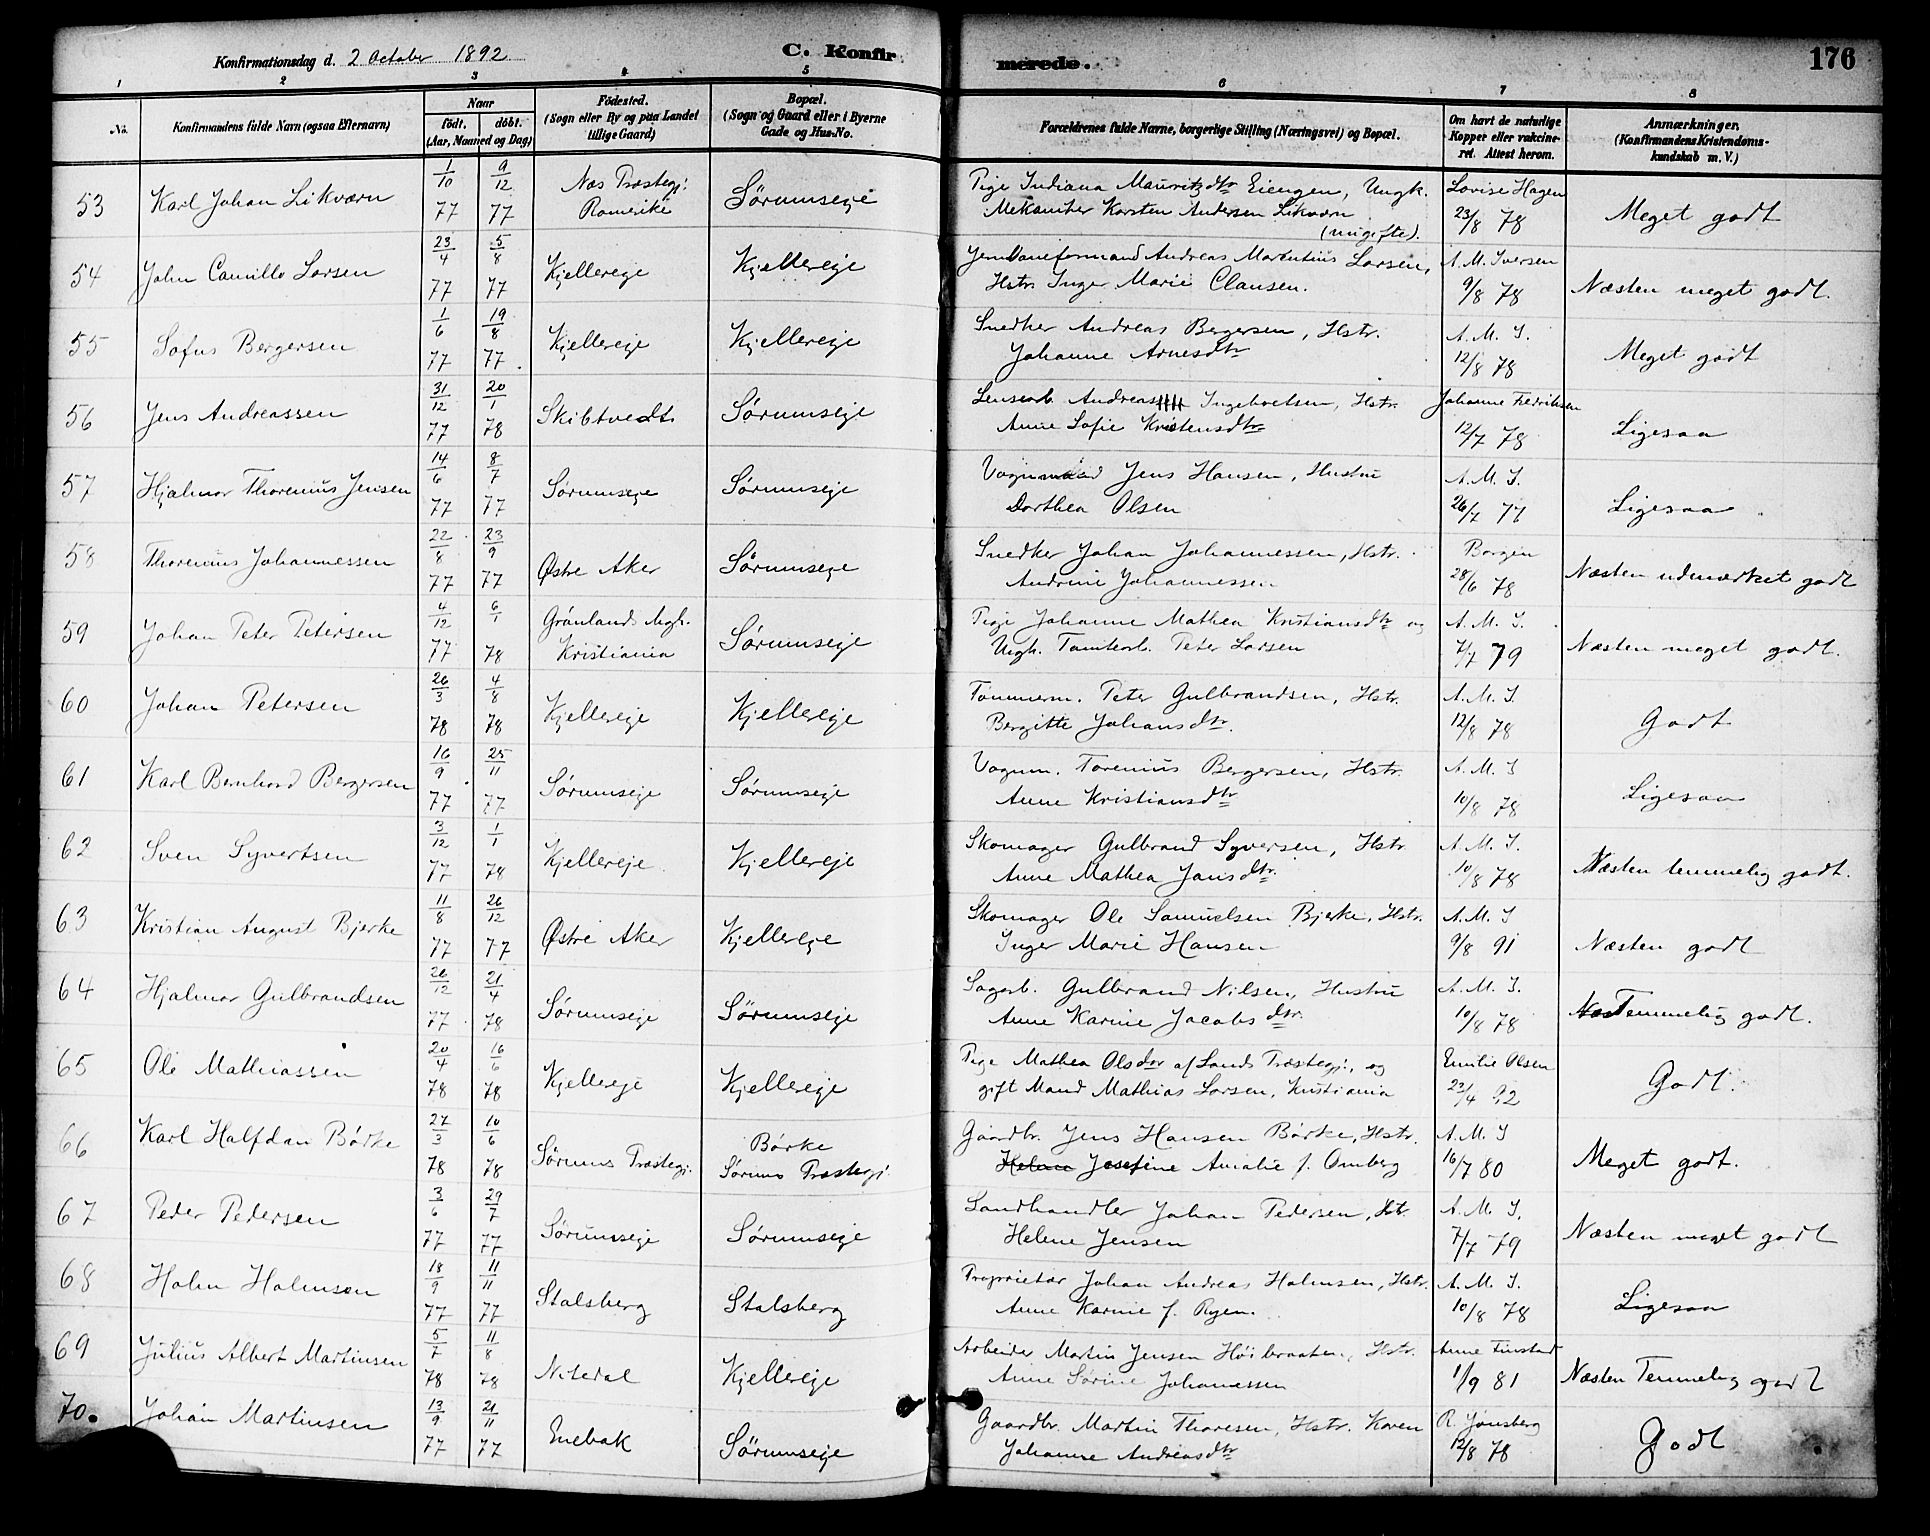 Konfirmationsdag d. 2 October 1892. C. Konfirmerede. 176
1 2 3 4 5 6 7 8
No. Konfirmandens fulde Navn (ogsaa Efternavn) Naar født. døbt. (Aar, Maaned og Dag) Fødested. (Sogn eller By og paa Landet tillige Gaard) Bopæl. (Sogn og Gaard eller i Byerne Gade og Hus-No. Forældrenes fulde Navne, borgerlige Stilling (Næringsvei) og Bopæl. Om havt de naturlige Kopper eller vakcineret. Attest herom. Anmærkninger. (Konfirmandens Kristendomskundskab m. V.)
53 Karl Johan Likværn 1/10 77 9/12 77 Næs Præstegj. Romerike Sørumseje Pige Indiana Mauritzdtr Eiengen, Ungk. Lovise Hagen
Mekaniker Karsten Andersen Likværn (ugifte). 23/8 78 Meget godt
54 John Camillo Larsen 23/4 77 5/8 77 Kjellereje Kjellereje Jernbaneformand Andreas Martinius Larsen, A. M. Iversen
Hstr. Inger Marie Clausen. 9/8 78 Næsten meget godt.
55 Sofus Bergersen 1/6 77 19/8 77. Kjellereje Kjellereje Snedker Andreas Bergersen, Hstr. A. M. I.
Johanne Arnesdtr 12/8 78 Meget godt
56 Jens Andreassen 31/12 77 20/1 78 Skibtvedt Sørumseje Lensarb. Andreas Ingebretsen, Hstr. Johanne Fredriksen
Anne Sofie Kristensdtr 12/7 78 Ligesaa
57 Hjalmar Thorenius Jensen 14/6 77 8/7 77 Sørumseje Sørumseje Vognmand Jens Hansen, Hustru A. M. I.
Dorthea Olsen 26/7 77 Ligesaa
58 Thorenius Johannessen 22/8 77 23/9 77 Østre Aker Sørumseje Snedker Johan Johannessen, Hstr. Borgen
Andrine Johannessen 28/6 78 Næsten udmærket godt
59 Johan Peter Petersen 4/12 77 6/1 78 Grønlands Mgh. Kristiania Sørumseje Pige Johanne Mathea Kristiansdtr og A. M. I.
Ungk. Tomtearb. Peter Larsen 7/7 79 Næsten meget godt.
60 Johan Petersen 26/3 78 4/8 78 Kjellereje Kjellereje Tømmerm. Peter Gulbrandsen, Hstr. A. M. I.
Bergitte Johansdtr. 12/8 78 Godt
61 Karl Bernhard Bergersen 16/9 77 25/11 77 Sørumseje Sørumseje Vognm. Torenius Bergersen, Hstr. A. M. I
Anne Kristiansdtr 10/8 78 Ligesaa
62 Sven Syvertsen 3/12 77 1/1 78 Kjellereje. Kjellereje Skomager Gulbrand Syversen, Hstr A. M. I.
Anne Mathea Jansdtr. 10/8 78 Næsten temmelig godt.
63 Kristian August Bjerke 11/8 77 26/12 77 Østre Aker Kjellereje Skomager Ole Samuelsen Bjerke, Hstr. A. M. I
Inger Marie Hansen 9/8 91 Næsten godt
64 Hjalmar Gulbrandsen 26/12 77 21/4 78 Sørumseje Sørumseje Sagarb. Gulbrand Nilsen, Hustru A. M. I.
Anne Karine Jacobsdtr. 10/8 78 Temmelig godt.
65 Ole Mathiassen 20/4 78 16/6 78 Kjellereje Kjellereje Pige Mathea Olsdtr af Lands Præstegj., og Emilie Olsen
gift Mand Mathias Larsen, Kristiania 22/4 92 Godt.
66 Karl Halfdan Børke 27/3 78 10/6 78 Sørums Præstegj. Børke Sørums Præstegj. Gaardbr. Jens Hansen Børke, Hstr. A. M. I
Helene Josefine Amalie f. Omberg 16/7 80 Meget godt.
67 Peder Pedersen 3/6 77 29/7 77 Sørumseje Sørumseje Landhandler Johan Pedersen, Hstr. A. M. I.
Helene Jensen 7/7 79 Næsten meget godt
68 Halm Halmsen 18/9 77 11/11 77 Stalsberg Stalsberg Proprietær Johan Andreas Halmsen, Hstr. A. M. I.
Anne Karine f. Ryen. 10/8 78 Ligesaa
69 Julius Albert Martinsen 5/7 78 11/8 78 Nitedal Kjellereje Arbeider Martin Jensen Høibraaten, Hstr. Anne Finstad
Anne Sørine Johanessen 1/9 81 Næsten Temmelig godt
70. Johan Martinsen 13/9 77 21/11 77 Enebak Sørumseje Gaardbr. Martin Thoresen, Hstr. Karen R. Jønsberg
Johanne Andreasdtr 12/8 78 Godt